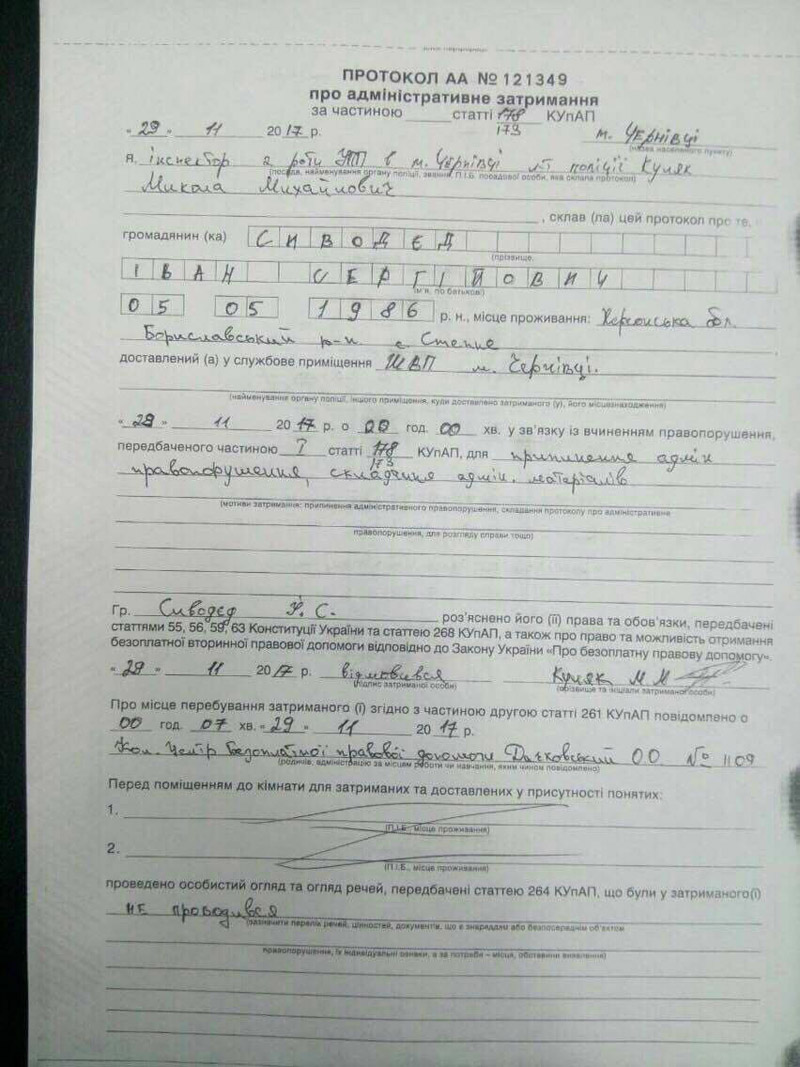 ПРОТОКОЛ АА № 121349
про адміністративне затримання
за частиною ____ статті 178 КУпАП
173
« 29 » 11 2017 р. м. Чернівці
(назва населеного пункту)
я, інспектор роти УПП в м. Чернівці л-т поліції Куляк
(посада, найменування органу поліції, звання, П.І.Б. посадової особи, яка склала протокол)
Микола Михайлович
, склав (ла) цей протокол про те,
громадянин (ка) СИВОДЄД
(прізвище,
ІВАН СЕРГІЙОВИЧ
ім'я, по батькові)
05 05 1986 р. н., місце проживання: Херсонська обл.
Бориславський р-н с. Степне
доставлений (а) у службове приміщення м. Чернівці.
(найменування органу поліції, іншого приміщення, куди доставлено затриманого (у), його місцезнаходження)
« 29 » 11 2017 р. о 00 год. 00 хв. у зв'язку із вчиненням правопорушення,
передбаченого частиною ? статті 178 КУпАП, для припинення адмін
173
правопорушення, складання адмін. матеріалів
(мотиви затримання: припинення адміністративного правопорушення, складання протоколу про адміністративне
правопорушення, для розгляду справи тощо)
Гр. Сиводєд І. С. роз'яснено його (її) права та обов'язки, передбачені
статтями 55, 56, 59, 63 Конституції України та статтею 268 КУпАП, а також про право та можливість отримання
безоплатної вторинної правової допомоги відповідно до Закону України «Про безоплатну правову допомогу».
« 29 » 11 2017 р. відмовився Куляк М М
(підпис затриманої особи) (прізвище та ініціали затриманої особи)
Про місце перебування затриманого (ї) згідно з частиною другою статті 261 КУпАП повідомлено о
00 год. 07 хв. « 29 » 11 2017 р.
Центр безоплатної правової допомоги Дачковський О О № 1109
(родичів, адміністрацію за місцем роботи чи навчання, яким чином повідомлено)
Перед поміщенням до кімнати для затриманих та доставлених у присутності понятих:
1.
(П.І.Б., місце проживання)
2.
(П.І.Б., місце проживання)
проведено особистий огляд та огляд речей, передбачені статтею 264 КУпАП, що були у затриманого(ї)
не проводився
(зазначити перелік речей, цінностей, документів, що є знаряддям або безпосереднім об'єктом
правопорушення, їх індивідуальні ознаки, а за потреби – місця, обставини виявлення)